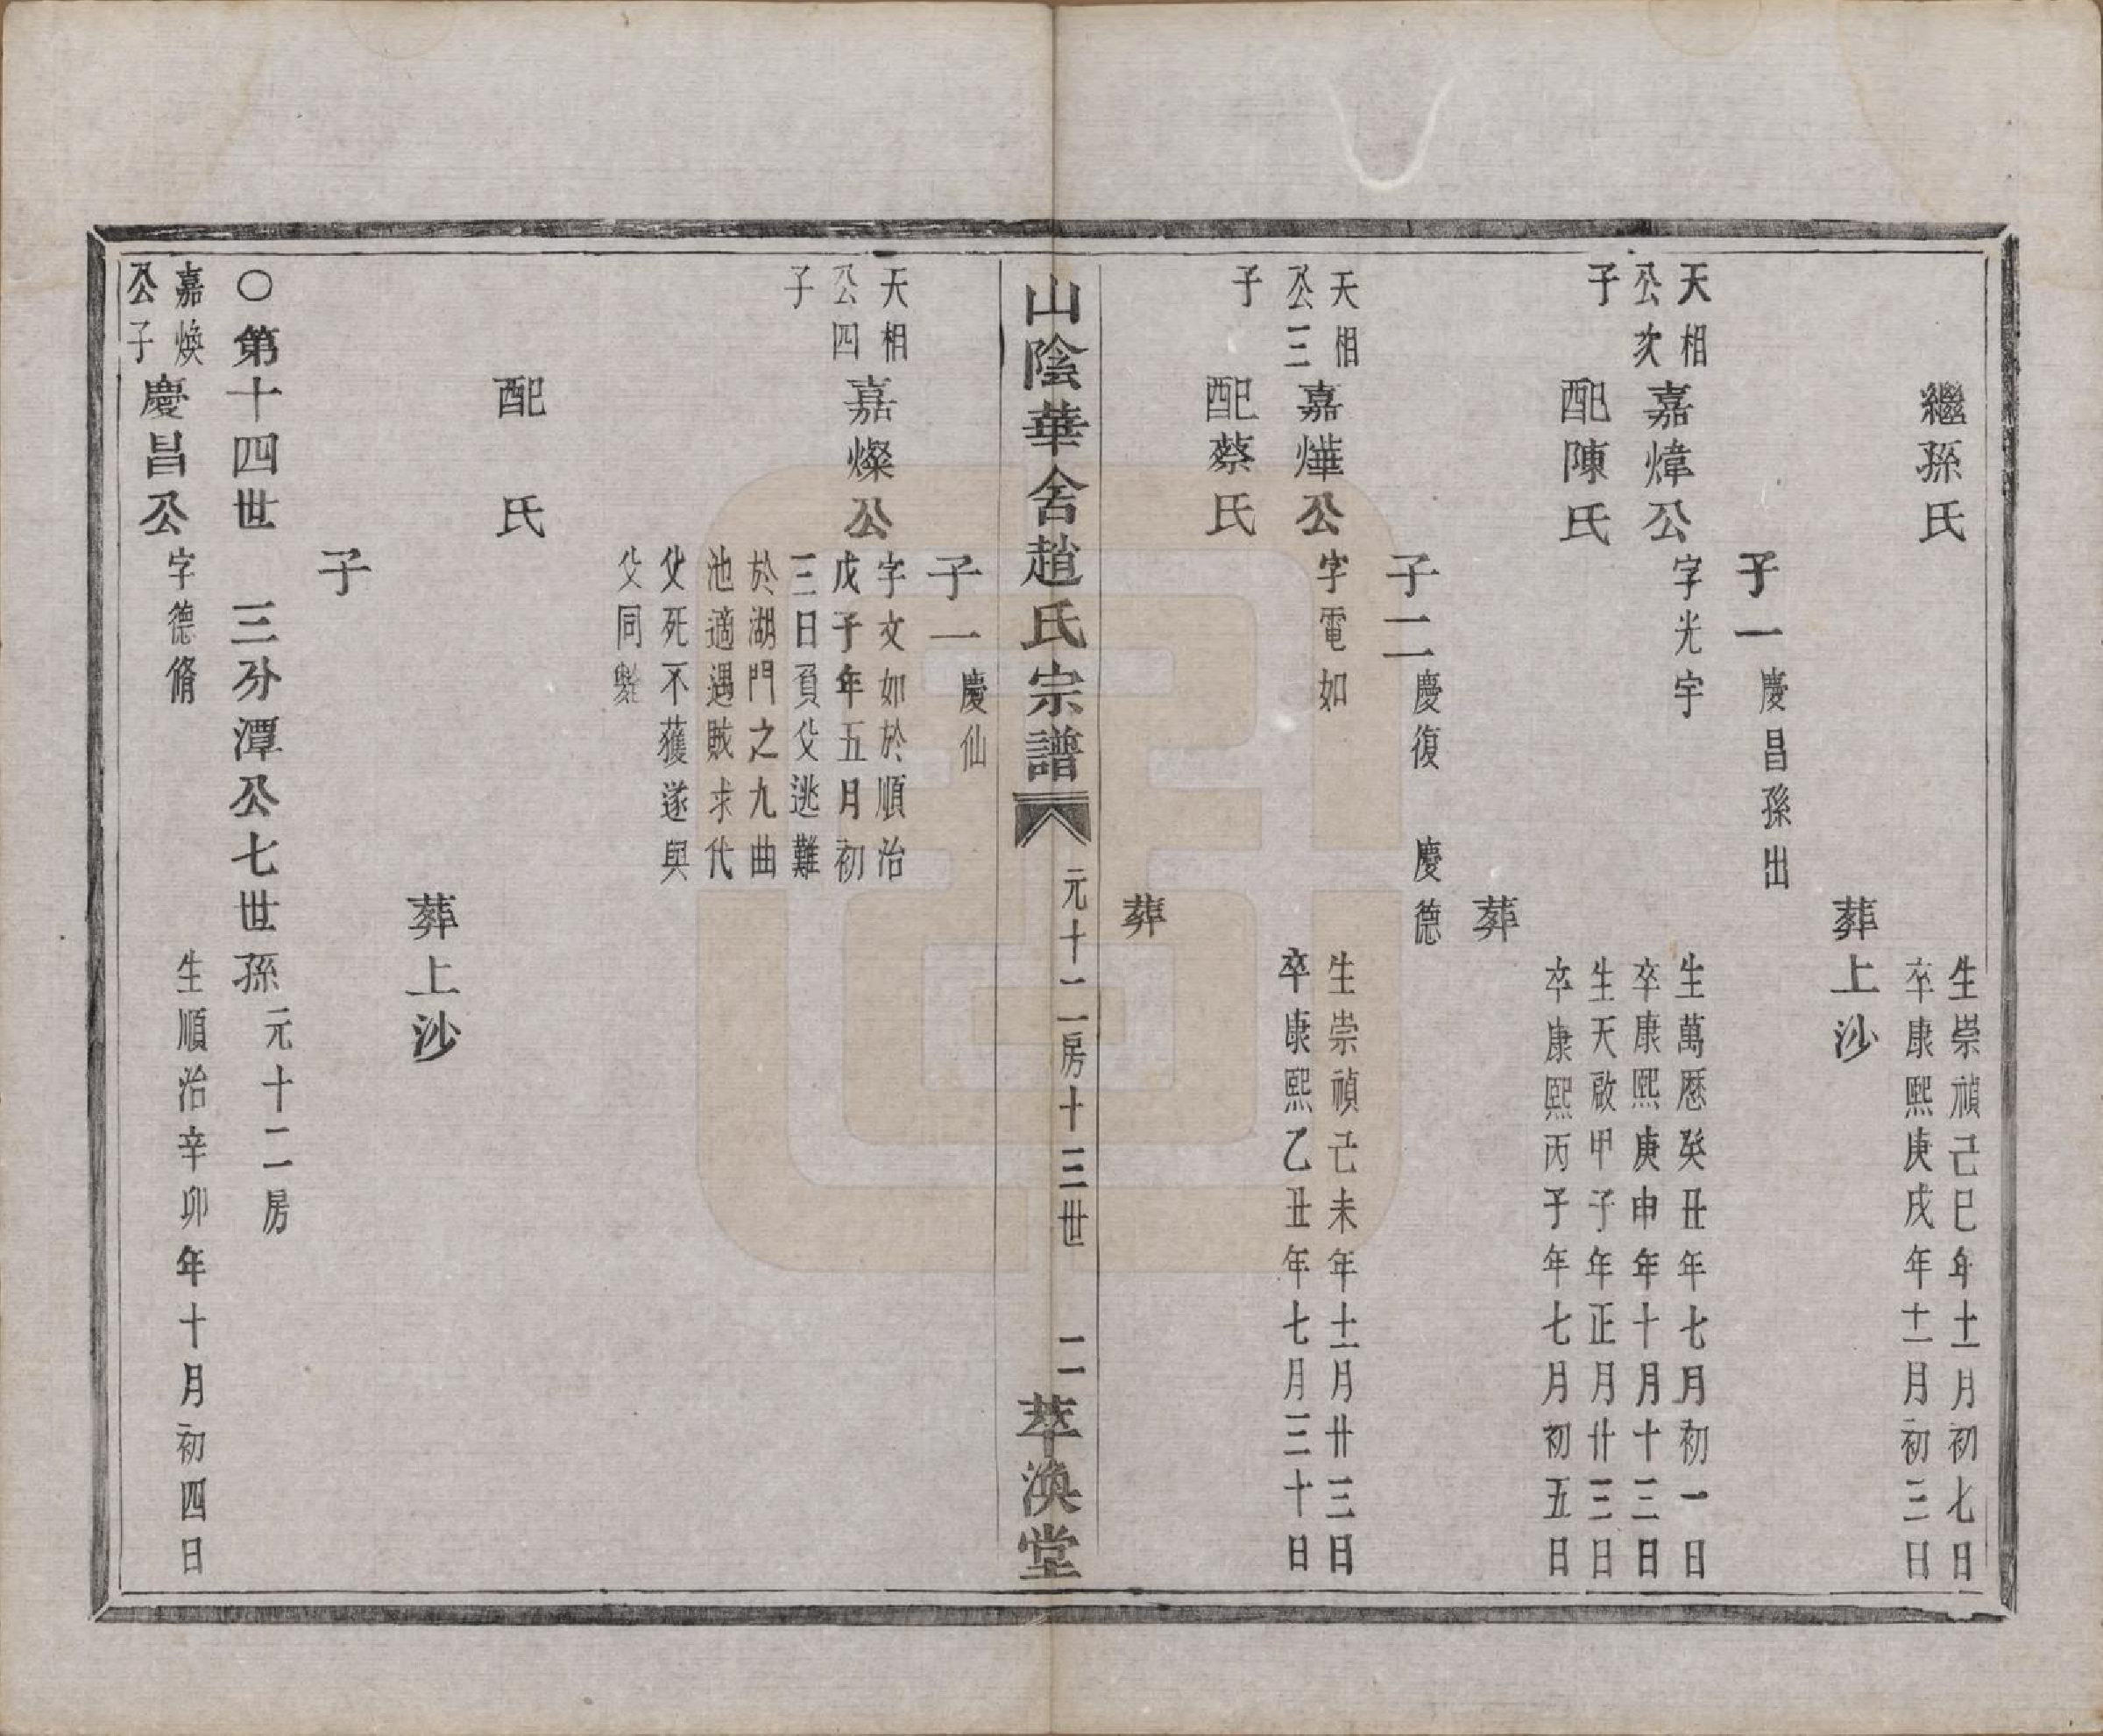 繼孫氏
生崇禎己巳年十一月初七日
卒康熙庚戌年十一月初三日
葬上沙
子一
慶昌孫出
天相
公次
子
嘉煒公
字光宇
生萬歷癸丑年七月初一日
卒康熙庚申年十月十三日
配陳氏
生天啟甲子年正月廿三日
卒康熙丙子年七月初五日
葬
子二
慶復　慶德
天相
公三
子
嘉燁公
字電如
生崇禎己未年十一月廿三日
卒康熙乙丑年七月三十日
配蔡氏
葬
山陰華舍趙氏宗譜
元十二房十三世　二
萃渙堂
子一
慶仙
天相
公四
子
嘉燦公
字文如於順治
戊子年五月初
三日負父逃難
於湖門之九曲
池適遇賊求代
父死不獲遂與
父同斃
配　氏
葬上沙
子
〇第十四世　三分潭公七世孫
元十二房
嘉煥
公子
慶昌公
字德脩
生順治辛卯年十月初四日